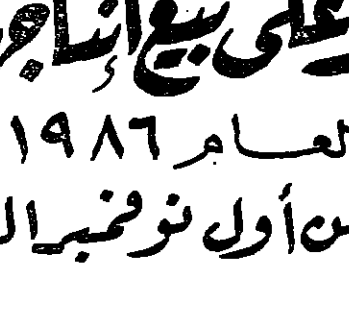 على بيع إنتاج
لعام ١٩٨٦
من أول نوفمبر ال